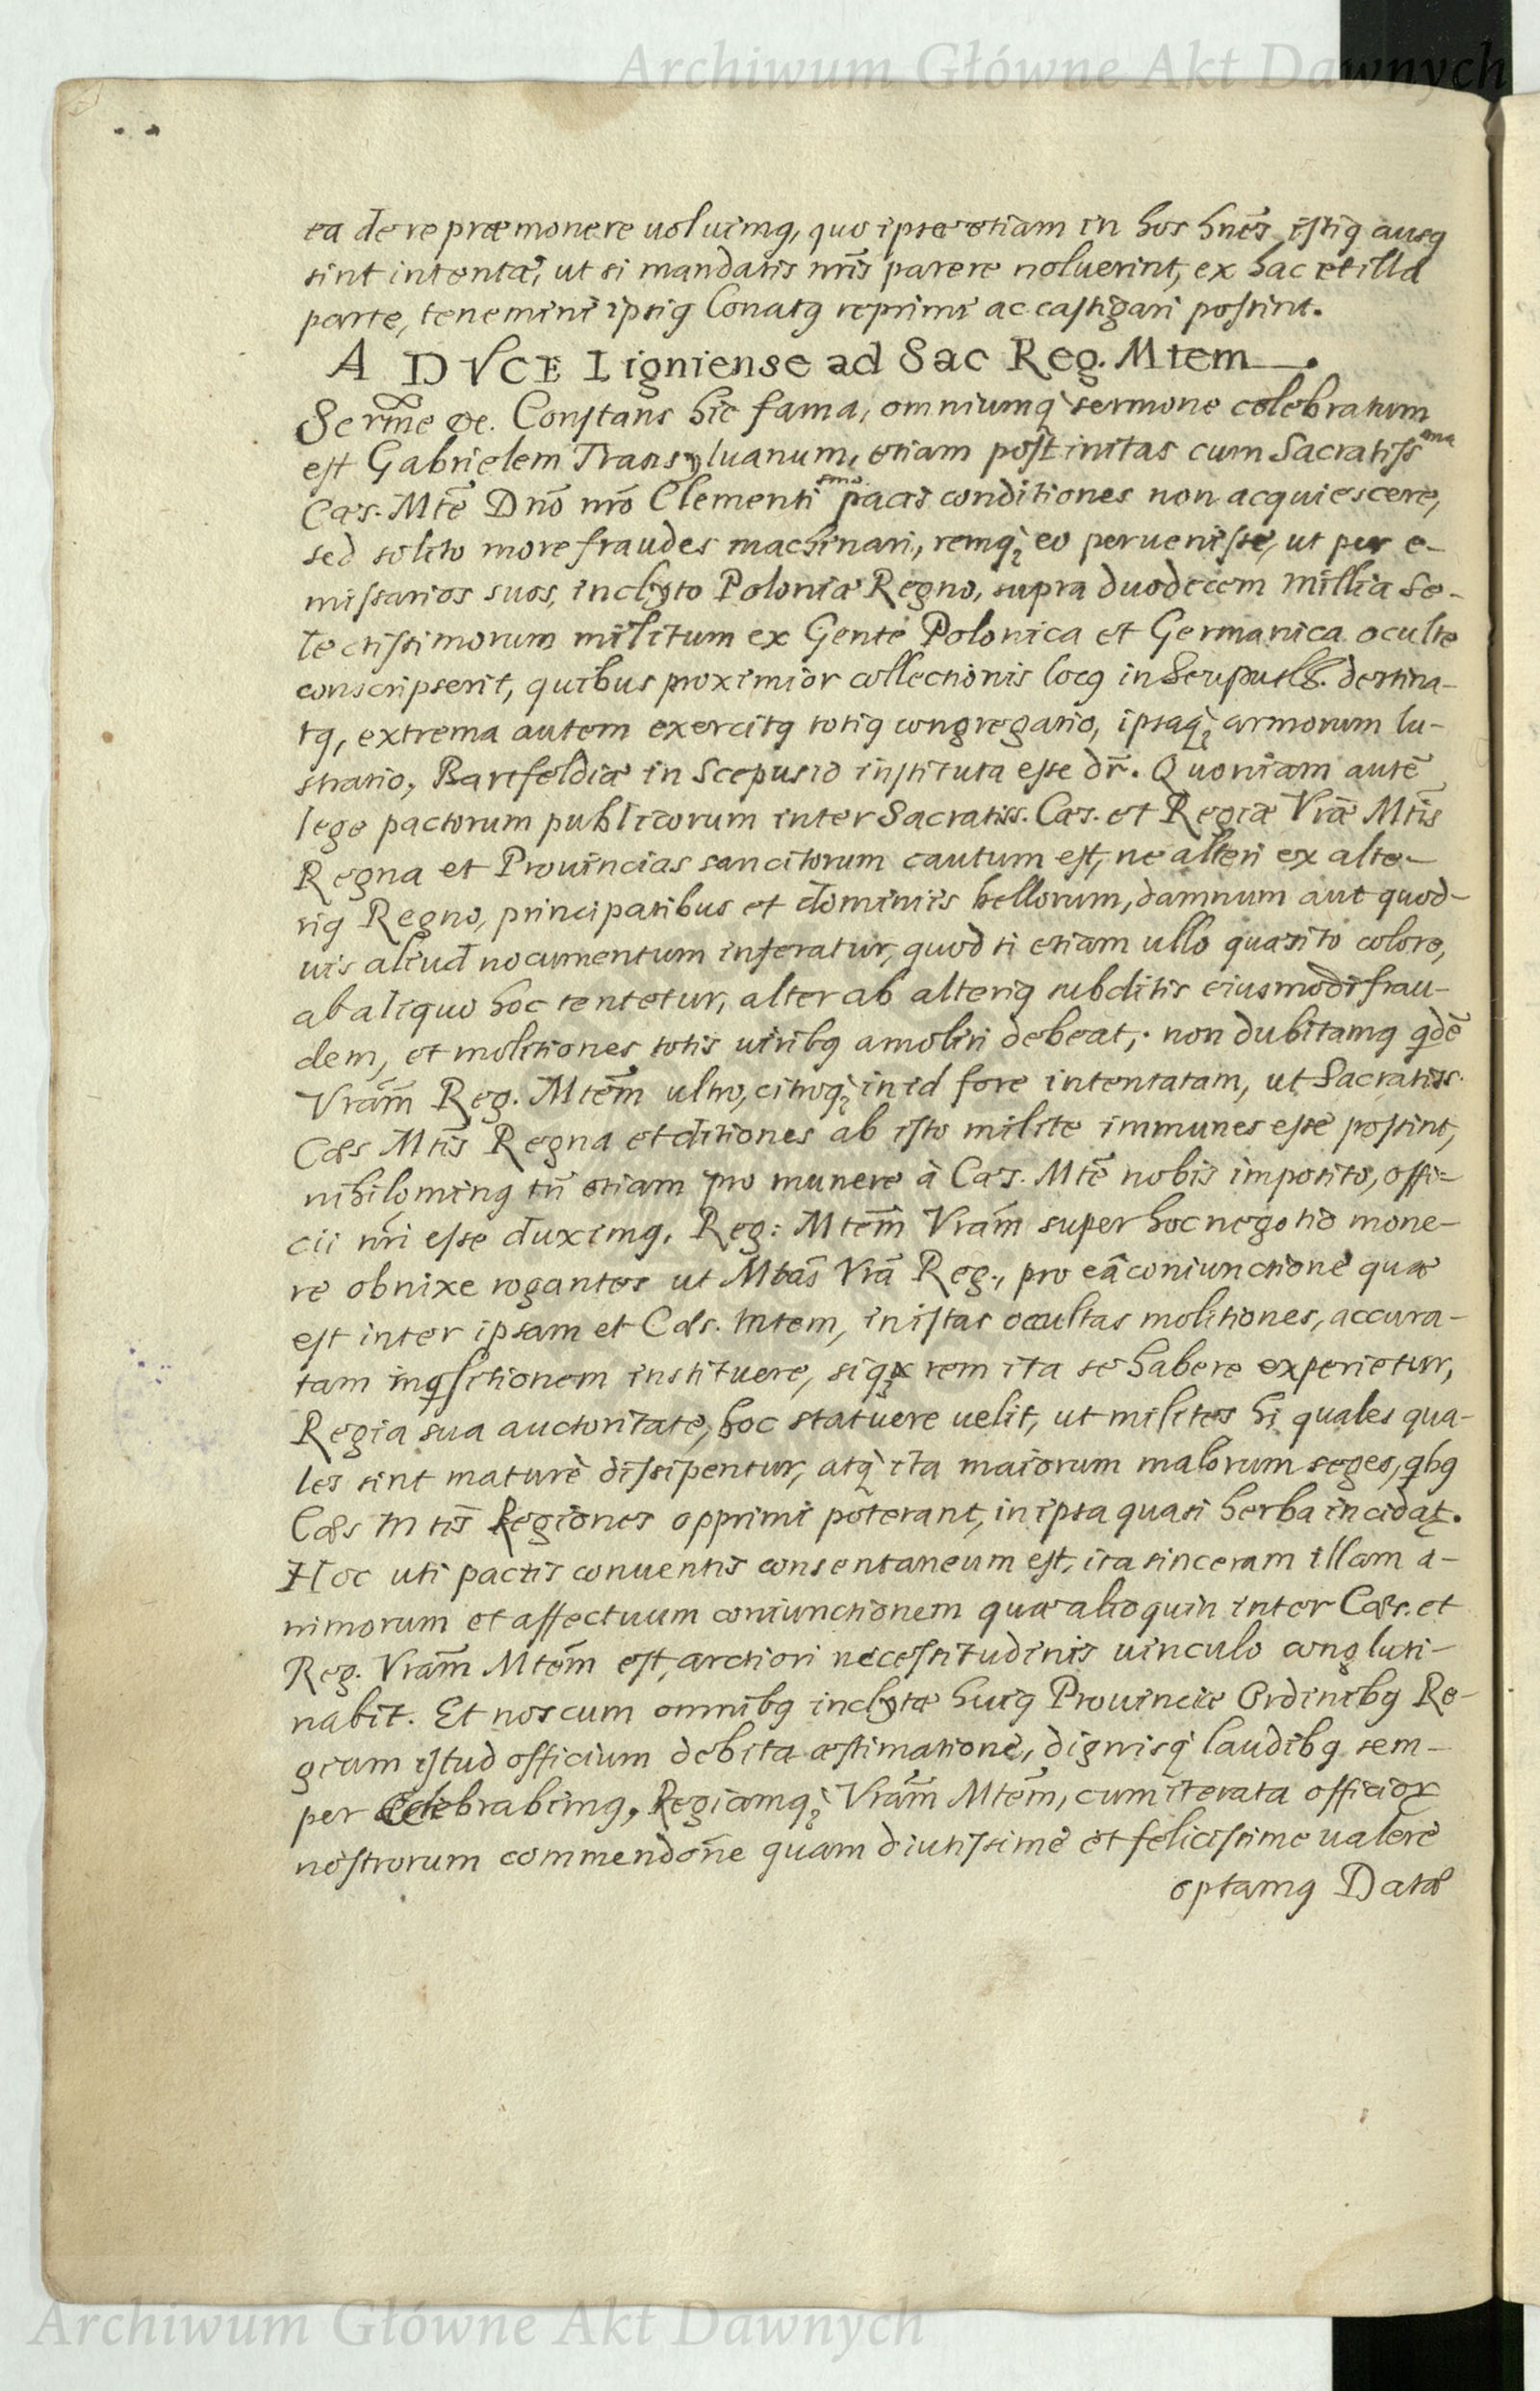 Archiwum Główne Akt Dawnych
ea de re præmonere uoluimꝰ, quo ipsæ etiam in hos hnēs istiꝰ ausꝰ
sint intentæ, ut si mandatis nr̃is parere noluerint, ex hac et illa
parte, temerarii ipsiꝰ Conatꝰ reprimi ac castigari possint.
A DVCE Ligniense ad Sac Reg. Mtem
Serme &c. Constans hic fama, omniumq́ sermone celebratum
est Gabrielem Transyluanum, etiam post initas cum Sacratiss ma
Cæs. Mte Dno nro Clementi smo pacis conditiones non acquiescere,
sed solito more fraudes machinari, remq́ eo peruenisse, ut per e-
missarios suos, inclyto Poloniæ Regno, supra duodecem millia se-
lectissimorum militum ex Gente Polonica et Germanica oculte
conscripserit, quibus proximior collectionis locꝰ in destina-
tꝰ, extrema autem exercitꝰ totiꝰ congregatio, ipsaq́ armorum lu-
stratio, Bartfeldiæ in Scepusio instituta esse dr̃. Quoniam autē
lege pactorum publicorum inter Sacratiss. Cæs. et Regiæ Vræ Mtis
Regna et Prouincias sancitorum cautum est, ne alteri ex alte-
riꝰ Regno, principatibus et dominiis bellorum, damnum aut quod-
uis aliud nocumentum inferatur, quod si etiam ullo quæsito colore,
ab aliquo hoc tentetur, alter ab alteriꝰ subditis eiusmodi frau-
dem, et molitiones totis uiribꝰ amoliri debeat, non dubitamꝰ qdē
Vram Reg. Mtem ultro, citroq́ in id fore intentatam, ut Sacratiss.
Cæs Mtis Regna et ditiones ab isto milite immunes esse possint,
nihilominꝰ tñ etiam pro munere à Cæs. Mte nobis imposito, offi-
cii nri esse duximꝰ, Reg: Mtem Vram super hoc negotio mone-
re obnixe rogantes ut Mtas Vra Reg., pro eâ coniunctione quæ
est inter ipsam et Cæs. Mtem, in istas occultas molitiones, accura-
tam inqsitionem instituere, siq́ rem ita se habere experietur,
Regia sua auctoritate, hoc statuere uelit, ut milites hi quales qua-
les sint maturè dissipentur, atq́ ita maiorum malorum seges, qbꝰ
Cæs Mtis Regiones opprimi poterant, in ipsa quasi herba incidat.
Hoc uti pactis conuentis consentaneum est, ita sinceram illam a-
nimorum et affectuum coniunctionem quæ alioquin inter Cæs. et
Reg. Vram Mtem est, arctiori necessitudinis uinculo congluti-
nabit. Et nos cum omnibꝰ inclytæ huiꝰ Prouinciæ Ordinibꝰ Re-
gium istud officium debita æstimatione, dignisq́ laudibꝰ sem-
per celebrabimꝰ, Regiamq́ Vram Mtem, cum iterata officior
nostrorum commendone quam diutissimè et felicissime ualere
optamꝰ Datæ
Archiwum Główne Akt Dawnych